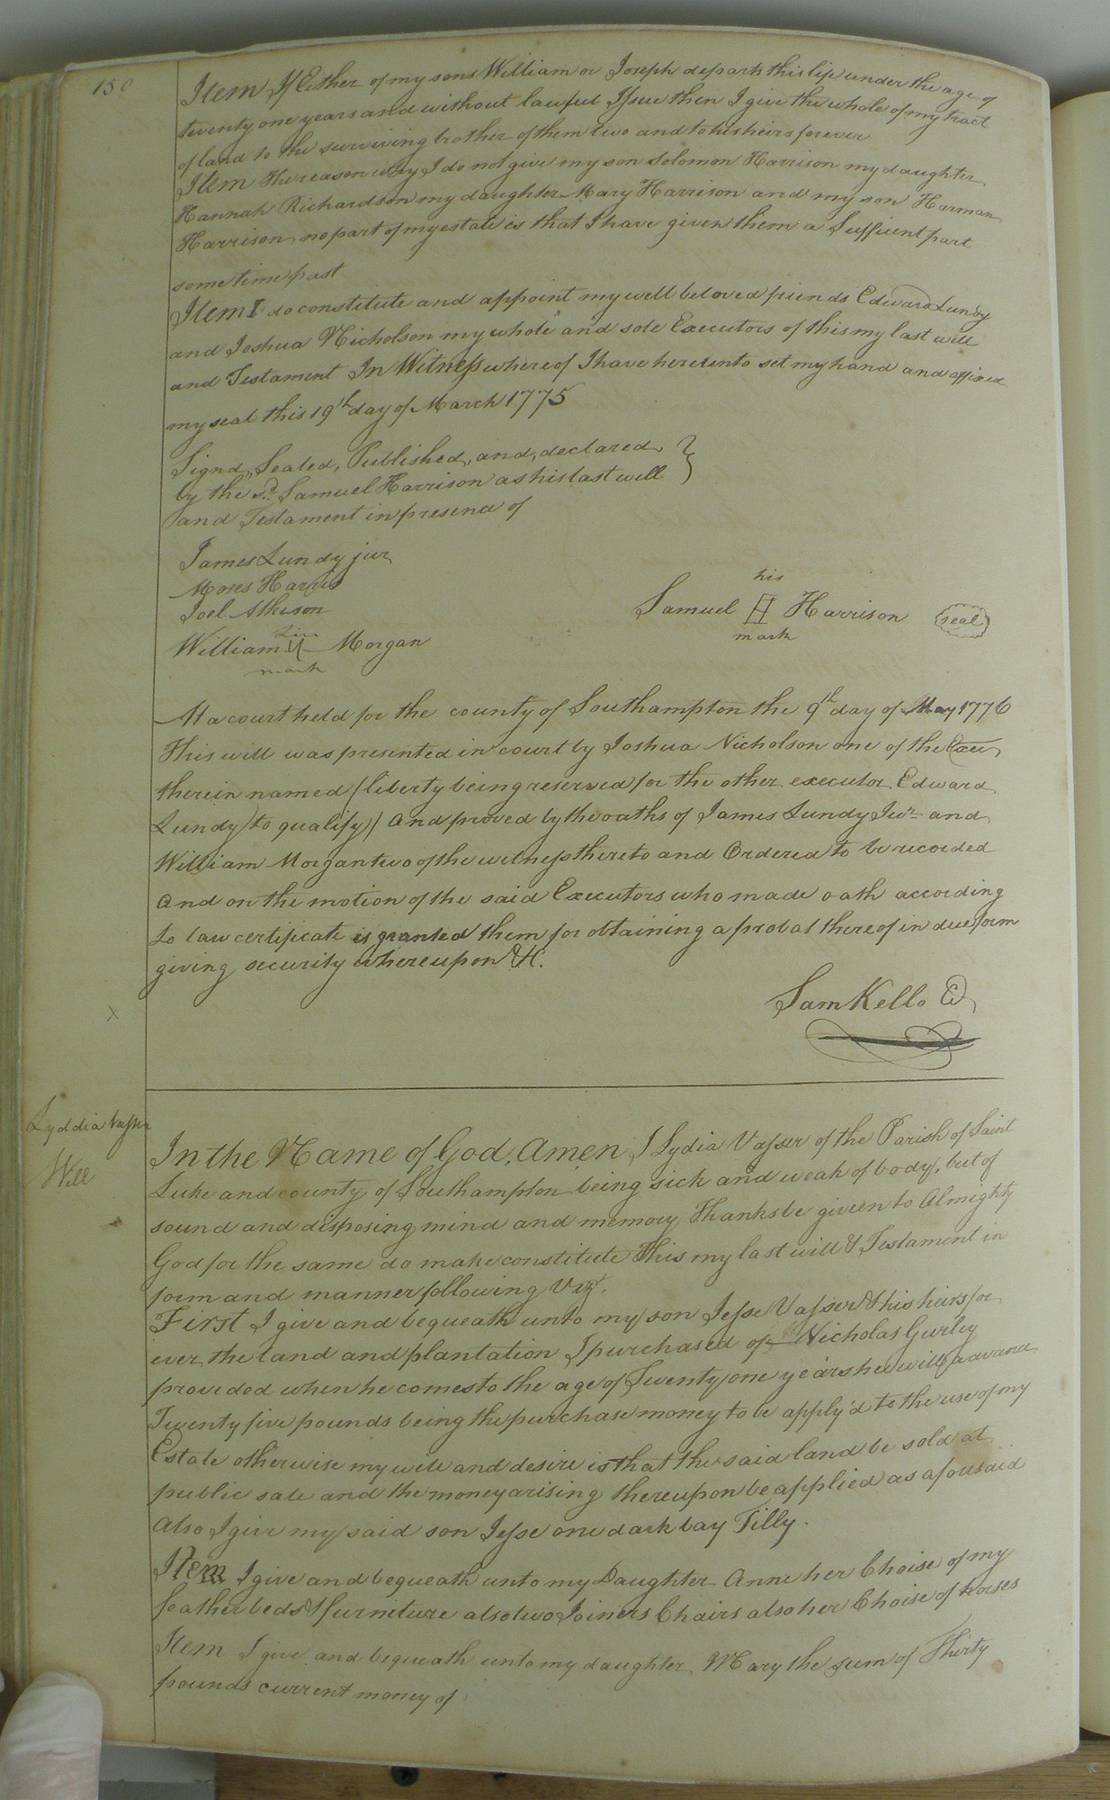 150
Item If Either of my sons William or Joseph departs this life under the age of
twenty one years and without lawful Issue then I give the whole of my tract
of land to the surviving brother of them two and to his heirs forever
Item the reason why I do not give my son Solomon Harrison my daughter
Hannah Richardson my daughter Mary Harrison and my son Harman
Harrison no part of my estate is that I have given them a Suffient part
some time past
Item I do constitute and appoint my well beloved friends Edward Lundy
and Joshua Nicholson my whole and sole Executors of this my last will
and Testament In Witness whereof I have hereunto set my hand and affixed
my seal this 19th day of March 1775
Signd, Sealed, Published, and, declared
by the sd. Samuel Harrison as his last will
and Testament in presence of
James Lundy jur
Moses Harris
Joel Atkison
William his mark Morgan
Samuel his H mark Harrison seal
At a court held for the county of Southampton the 9th day of May 1776
This will was presented in court by Joshua Nicholson one of the Exeu
therein named (liberty being reserved for the other executor Edward
Lundy to qualify) And proved by the oaths of James Lundy Jur. and
William Morgan two of the witness thereto and Ordered to be recorded
And on the motion of the said Executors who made oath according
to law certificate is granted them for obtaining a probat thereof in due form
giving security whereupon &c.
Sam Kello C
x
Lyddia Vasser
Will
In the Name of God, Amen I Lydia Vasser of the Parish of Saint
Luke and county of Southampton being sick and weak of body, but of
sound and disposing mind and memory Thanks be given to Almighty
God for the same do make constitute this my last will & Testament in
form and manner following Vizt.
First I give and bequeath unto my son Jesse Vasser & his heirs for
ever the land and plantation I purchased of Nicholas Gurley
provided when he comes to the age of Twenty one years he will advance
Twenty five pounds being the purchase money to be apply'd to the use of my
Estate otherwise my will and desire is that the said land be sold at
public sale and the money arising thereupon be applied as aforesaid
Also I give my said son Jesse one dark bay Filly.
Item I give and bequeath unto my Daughter Anne her Choise of my
feather beds & furniture also two Joiners Chairs also her Choise of horses
Item I give and bequeath unto my daughter Mary the sum of Thirty
pounds current money of